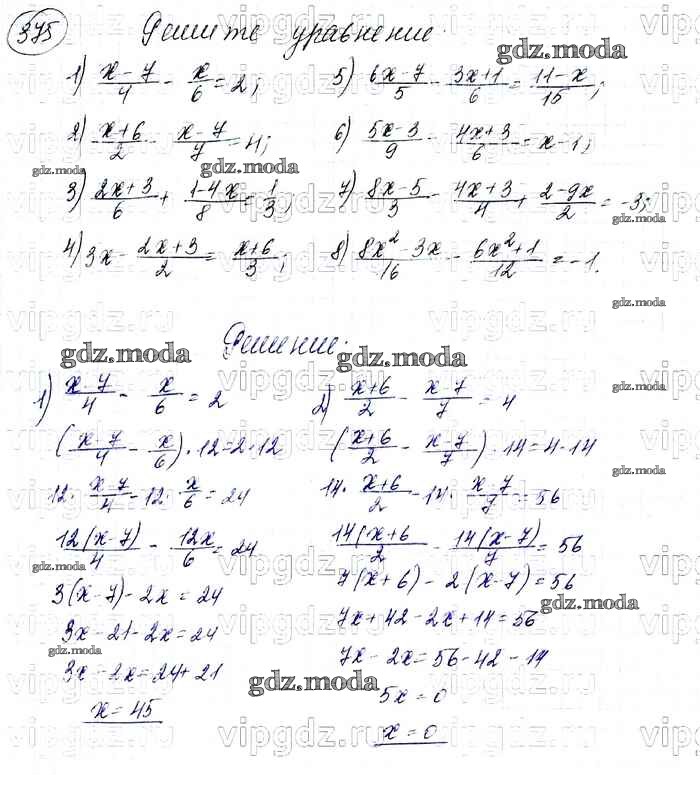 375 Решите уравнение:
1) (x-7)/4 - x/6 = 2; 5) (6x-7)/5 - (3x+1)/6 = (11-x)/15;
2) (x+6)/2 - (x-7)/7 = 4; 6) (5x-3)/9 - (4x+3)/6 = x-1;
3) (2x+3)/6 + (1-4x)/8 = 1/3; 7) (8x-5)/3 - (4x+3)/4 + (2-9x)/2 = -3;
4) 3x - (2x+3)/2 = (x+6)/3; 8) (8x²-3x)/16 - (6x²+1)/12 = -1.
Решение:
1) (x-7)/4 - x/6 = 2
((x-7)/4 - x/6)·12=2·12
12·(x-7)/4 - 12·x/6 = 24
12(x-7)/4 - 12x/6 = 24
3(x-7)-2x=24
3x-21-2x=24
3x-2x=24+21
x=45
2) (x+6)/2 - (x-7)/7 = 4
((x+6)/2 - (x-7)/7)·14=4·14
14·(x+6)/2 - 14·(x-7)/7 = 56
14(x+6)/2 - 14(x-7)/7 = 56
7(x+6)-2(x-7)=56
7x+42-2x+14=56
7x-2x=56-42-14
5x=0
x=0
gdz.moda
vipgdz.ru